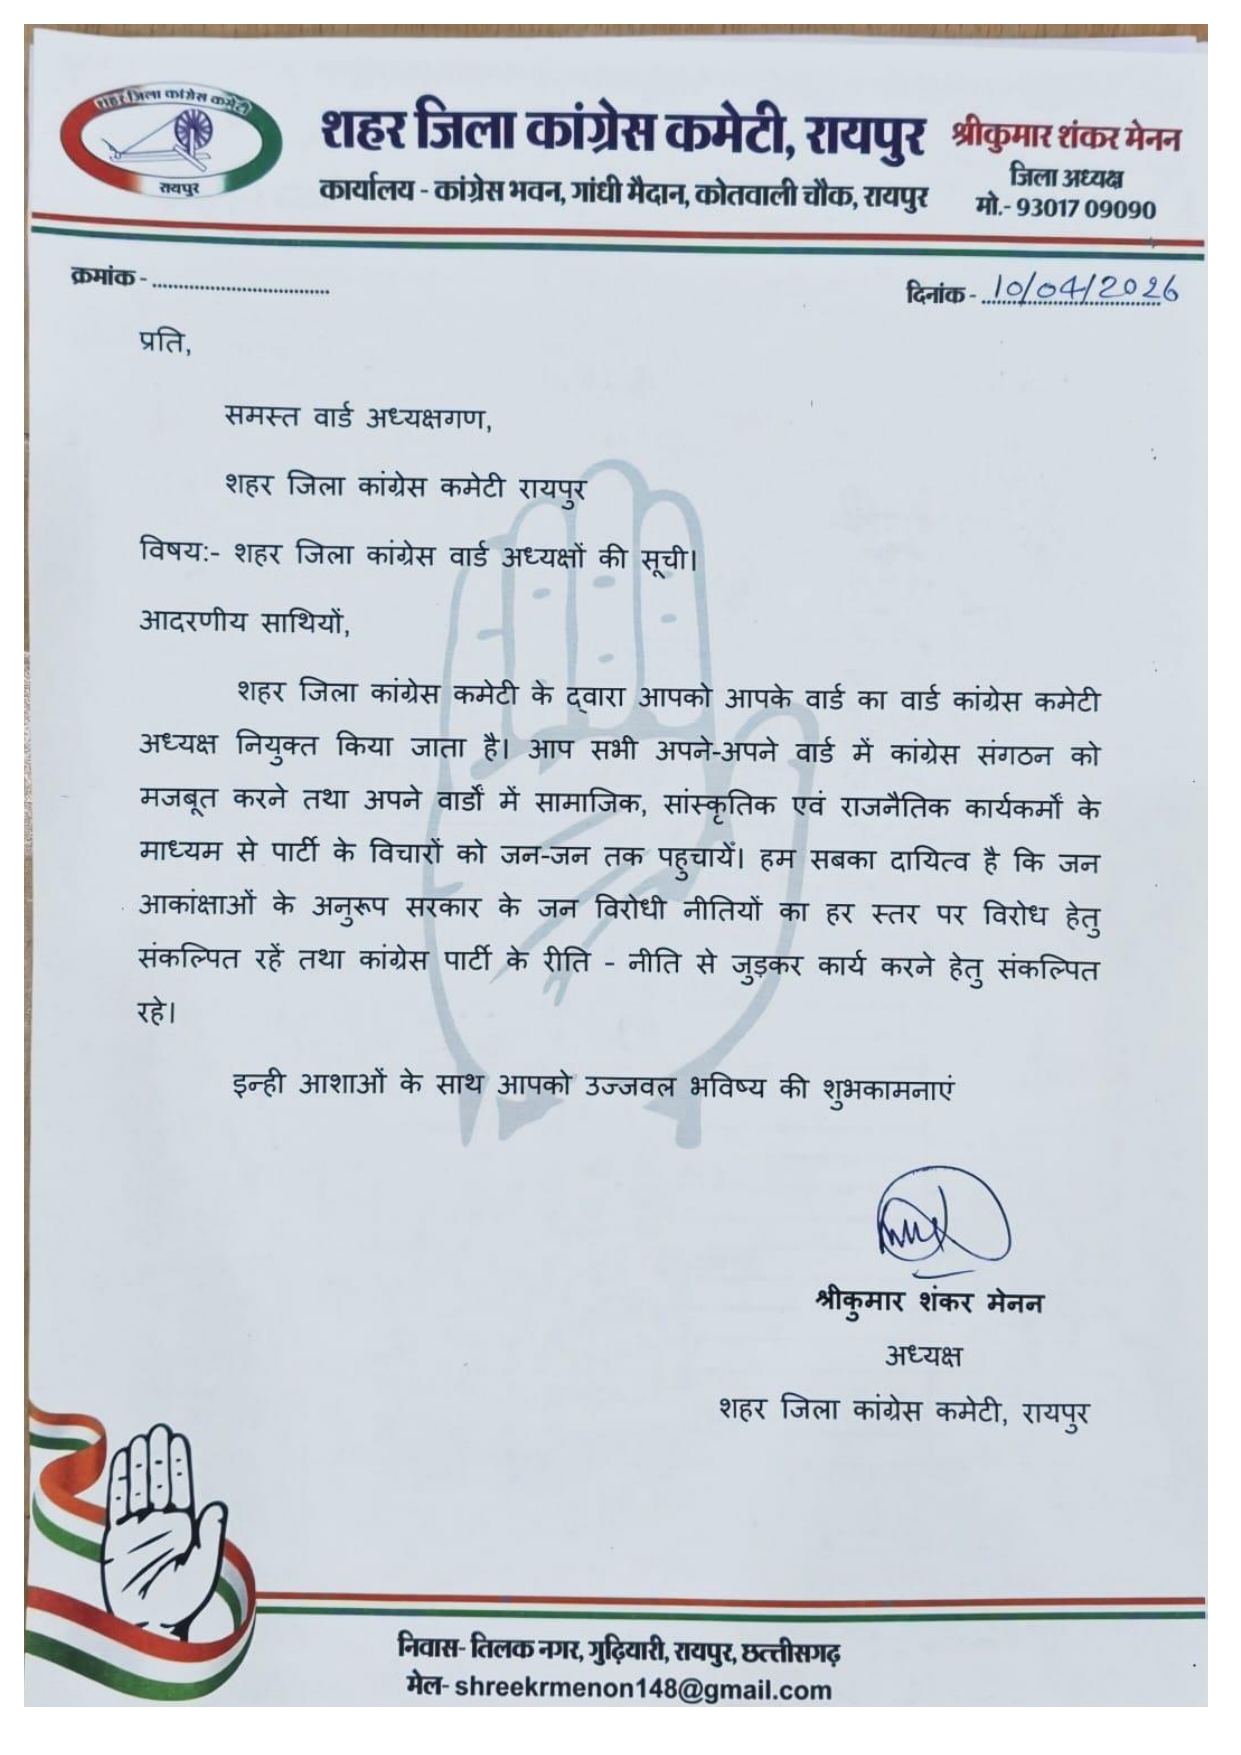 शहर जिला कांग्रेस कमेटी
रायपुर
शहर जिला कांग्रेस कमेटी, रायपुर
कार्यालय - कांग्रेस भवन, गांधी मैदान, कोतवाली चौक, रायपुर
श्रीकुमार शंकर मेनन
जिला अध्यक्ष
मो.- 93017 09090
क्रमांक - ..................................
दिनांक - 10/04/2026
प्रति,
समस्त वार्ड अध्यक्षगण,
शहर जिला कांग्रेस कमेटी रायपुर
विषय:- शहर जिला कांग्रेस वार्ड अध्यक्षों की सूची।
आदरणीय साथियों,
शहर जिला कांग्रेस कमेटी के द्वारा आपको आपके वार्ड का वार्ड कांग्रेस कमेटी
अध्यक्ष नियुक्त किया जाता है। आप सभी अपने-अपने वार्ड में कांग्रेस संगठन को
मजबूत करने तथा अपने वार्डों में सामाजिक, सांस्कृतिक एवं राजनैतिक कार्यकर्मों के
माध्यम से पार्टी के विचारों को जन-जन तक पहुचायें। हम सबका दायित्व है कि जन
आकांक्षाओं के अनुरूप सरकार के जन विरोधी नीतियों का हर स्तर पर विरोध हेतु
संकल्पित रहें तथा कांग्रेस पार्टी के रीति - नीति से जुड़कर कार्य करने हेतु संकल्पित
रहे।
इन्ही आशाओं के साथ आपको उज्जवल भविष्य की शुभकामनाएं
श्रीकुमार शंकर मेनन
अध्यक्ष
शहर जिला कांग्रेस कमेटी, रायपुर
निवास- तिलक नगर, गुढ़ियारी, रायपुर, छत्तीसगढ़
मेल- shreekrmenon148@gmail.com